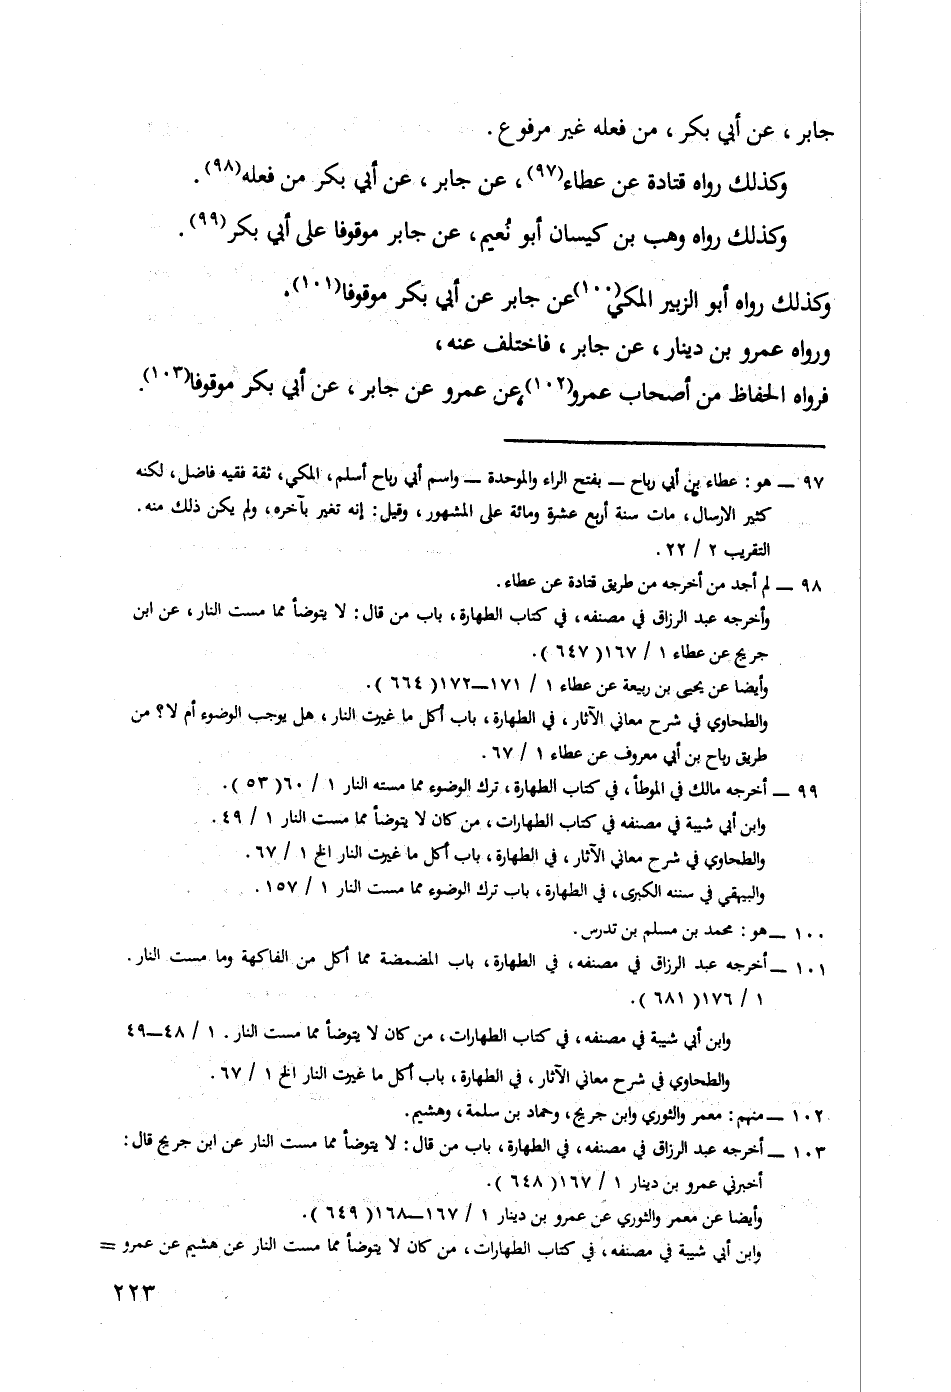 جابر ، عن أبي بكر ، من فعله غير مرفوع .
وكذلك رواه قتادة عن عطاء(٩٧) ، عن جابر ، عن أبي بكر من فعله(٩٨) .
وكذلك رواه وهب بن كيسان أبو نُعيم ، عن جابر موقوفا على أبي بكر(٩٩) .
وكذلك رواه أبو الزبير المكي(١٠٠) عن جابر عن أبي بكر موقوفا(١٠١) .
ورواه عمرو بن دينار ، عن جابر ، فاختلف عنه ،
فرواه الحفاظ من أصحاب عمرو(١٠٢) ، عن عمرو عن جابر ، عن أبي بكر موقوفا(١٠٣) .
٩٧ ــ هو : عطاء بن أبي رباح ــ بفتح الراء والموحدة ــ واسم أبي رباح أسلم ، المكي ، ثقة فقيه فاضل ، لكنه
كثير الارسال ، مات سنة أربع عشرة ومائة على المشهور ، وقيل : إنه تغير بآخره ، ولم يكن ذلك منه .
التقريب ٢ / ٢٢ .
٩٨ ــ لم أجد من أخرجه من طريق قتادة عن عطاء .
وأخرجه عبد الرزاق في مصنفه ، في كتاب الطهارة ، باب من قال : لا يتوضأ مما مست النار ، عن ابن
جريج عن عطاء ١ / ١٦٧( ٦٤٧ ) .
وأيضا عن يحيى بن ربيعة عن عطاء ١ / ١٧١ــ١٧٢( ٦٦٤ ) .
والطحاوي في شرح معاني الآثار ، في الطهارة ، باب أكل ما غيرت النار ، هل يوجب الوضوء أم لا؟ من
طريق رباح بن أبي معروف عن عطاء ١ / ٦٧ .
٩٩ ــ أخرجه مالك في الموطأ ، في كتاب الطهارة ، ترك الوضوء مما مسته النار ١ / ٦٠( ٥٣ ) .
وابن أبي شيبة في مصنفه في كتاب الطهارات ، من كان لا يتوضأ مما مست النار ١ / ٤٩ .
والطحاوي في شرح معاني الآثار ، في الطهارة ، باب أكل ما غيرت النار الخ ١ / ٦٧ .
والبيهقي في سننه الكبرى ، في الطهارة ، باب ترك الوضوء مما مست النار ١ / ١٥٧ .
١٠٠ ــ هو : محمد بن مسلم بن تدرس .
١٠١ ــ أخرجه عبد الرزاق في مصنفه ، في الطهارة ، باب المضمضة مما أكل من الفاكهة وما مست النار .
١ / ١٧٦( ٦٨١ ) .
وابن أبي شيبة في مصنفه ، في كتاب الطهارات ، من كان لا يتوضأ مما مست النار . ١ / ٤٨ــ٤٩
والطحاوي في شرح معاني الآثار ، في الطهارة ، باب أكل ما غيرت النار الخ ١ / ٦٧ .
١٠٢ ــ منهم : معمر والثوري وابن جريج ، وحماد بن سلمة ، وهشيم .
١٠٣ ــ أخرجه عبد الرزاق في مصنفه ، في الطهارة ، باب من قال : لا يتوضأ مما مست النار عن ابن جريج قال :
أخبرني عمرو بن دينار ١ / ١٦٧( ٦٤٨ ) .
وأيضا عن معمر والثوري عن عمرو بن دينار ١ / ١٦٧ــ١٦٨( ٦٤٩ ) .
وابن أبي شيبة في مصنفه ، في كتاب الطهارات ، من كان لا يتوضأ مما مست النار عن هشيم عن عمرو =
٢٢٣